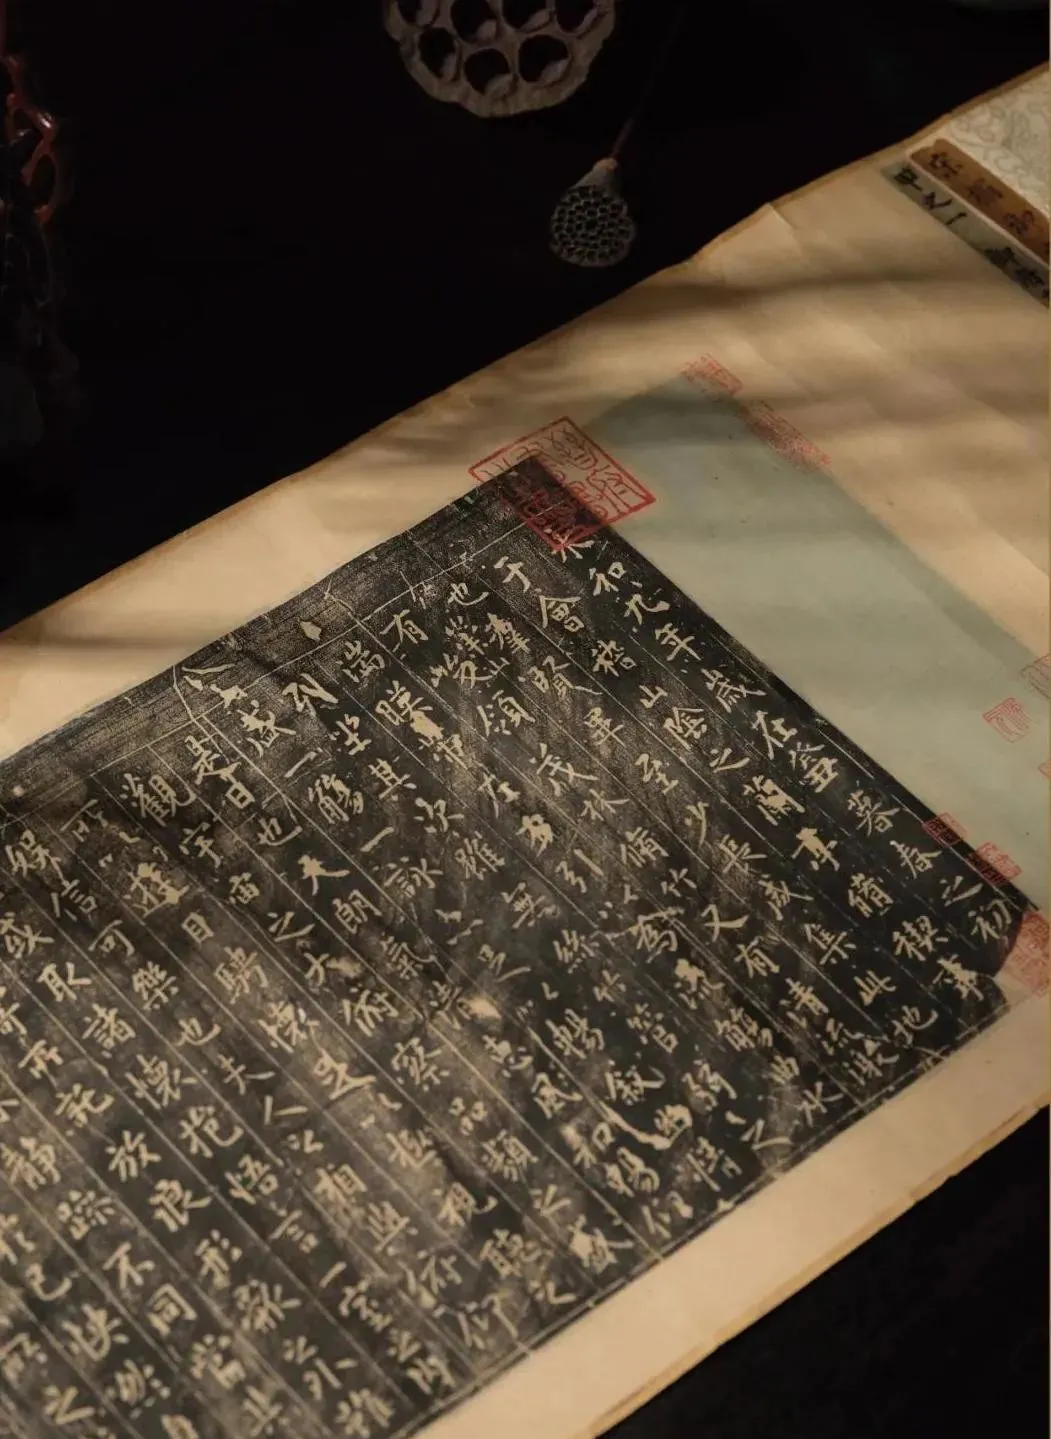 永和九年歲在癸丑暮春之初
于會稽山陰之蘭亭脩禊事
也羣賢畢至少長咸集此地
有崇山峻領茂林脩竹又有清流激
湍暎帶左右引以為流觴曲水
列坐其次雖無絲竹管弦之
盛一觴一詠亦足以暢敘幽情
是日也天朗氣清惠風和暢仰
觀宇宙之大俯察品類之盛
所以遊目騁懷足以極視聽之
娛信可樂也夫人之相與俯仰
或取諸懷抱悟言一室之內
寄所託放浪形骸之外雖
靜躁不同當其
於己快然自
之